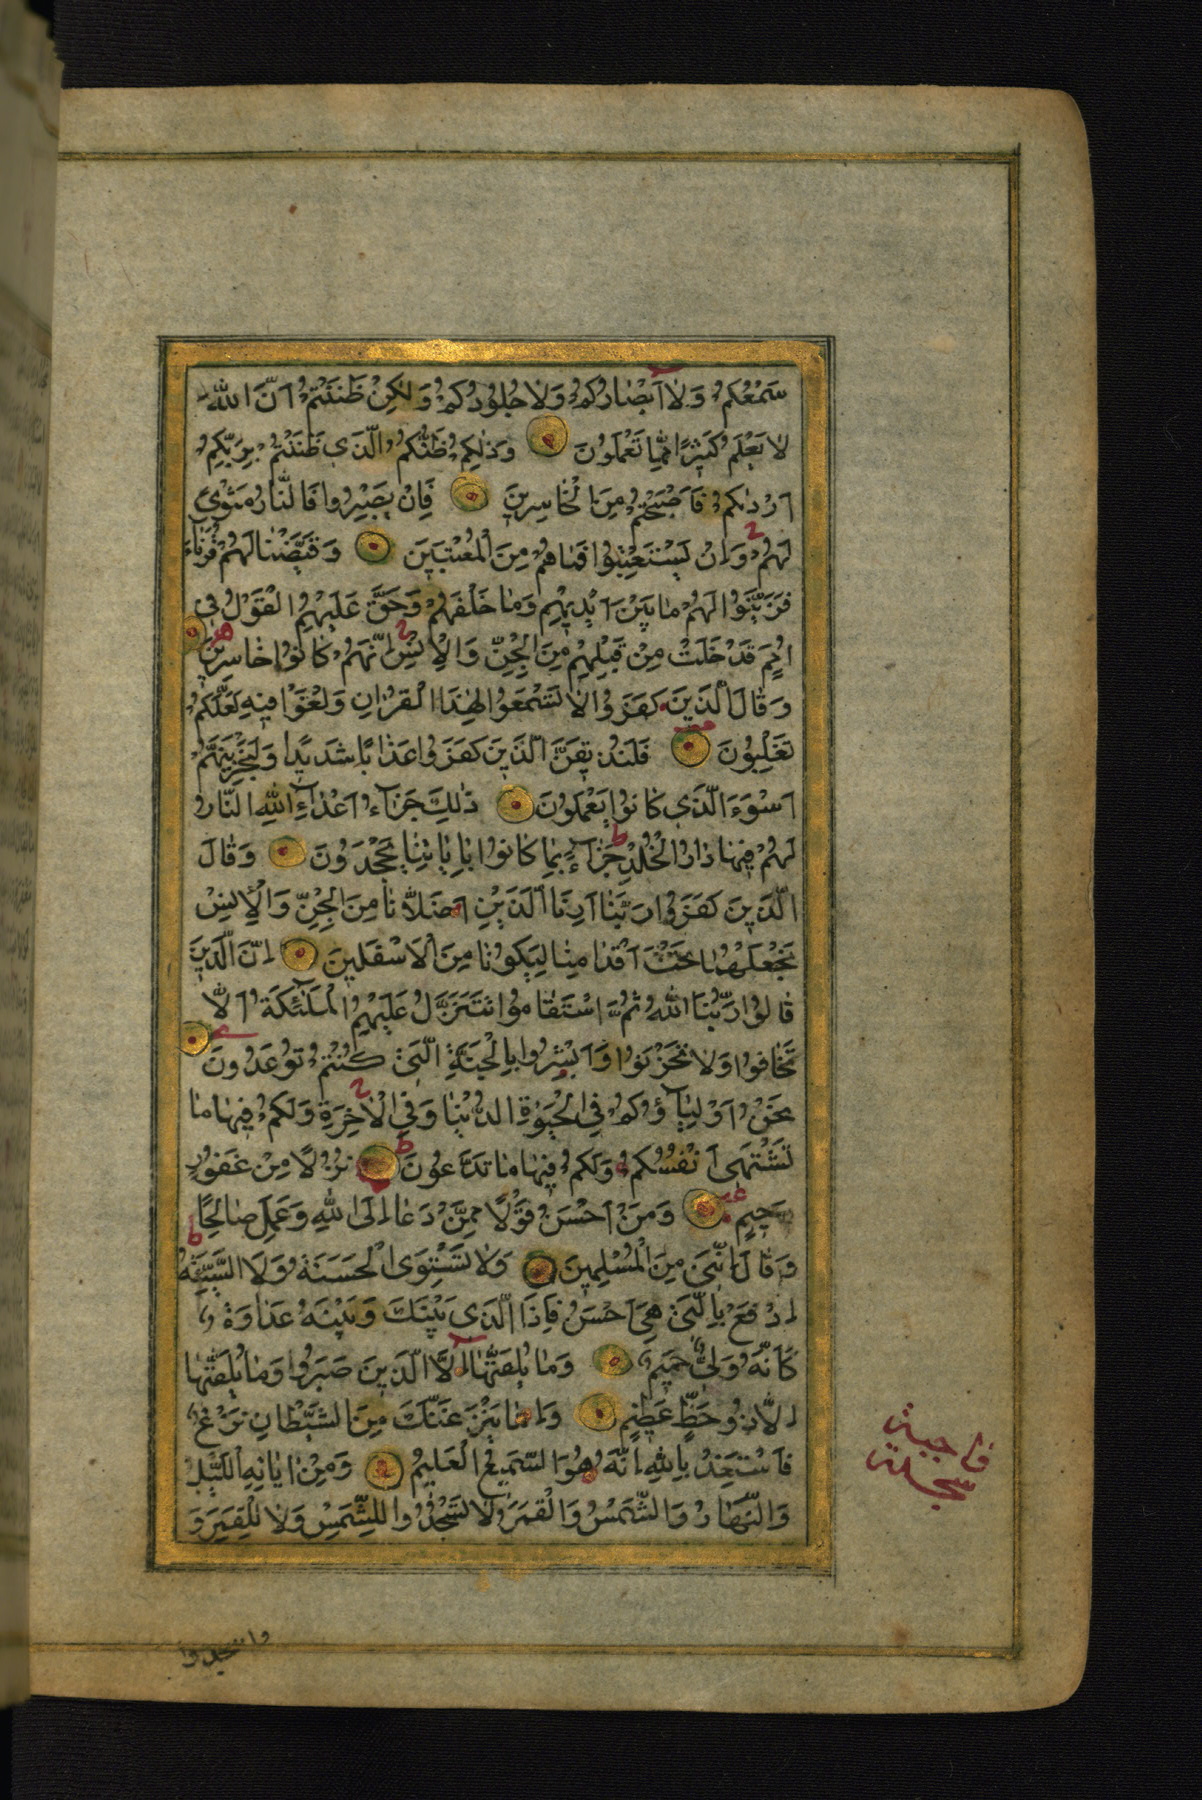 سَمْعُكُمْ وَلَا أَبْصَارُكُمْ وَلَا جُلُودُكُمْ وَلَكِنْ ظَنَنْتُمْ أَنَّ اللَّهَ
لَا يَعْلَمُ كَثِيرًا مِمَّا تَعْمَلُونَ وَذَلِكُمْ ظَنُّكُمُ الَّذِي ظَنَنْتُمْ بِرَبِّكُمْ
أَرْدَاكُمْ فَأَصْبَحْتُمْ مِنَ الْخَاسِرِينَ فَإِنْ يَصْبِرُوا فَالنَّارُ مَثْوًى
لَهُمْ وَإِنْ يَسْتَعْتِبُوا فَمَا هُمْ مِنَ الْمُعْتَبِينَ وَقَيَّضْنَا لَهُمْ قُرَنَاءَ
فَزَيَّنُوا لَهُمْ مَا بَيْنَ أَيْدِيهِمْ وَمَا خَلْفَهُمْ وَحَقَّ عَلَيْهِمُ الْقَوْلُ فِي
أُمَمٍ قَدْ خَلَتْ مِنْ قَبْلِهِمْ مِنَ الْجِنِّ وَالْإِنْسِ إِنَّهُمْ كَانُوا خَاسِرِينَ
وَقَالَ الَّذِينَ كَفَرُوا لَا تَسْمَعُوا لِهَذَا الْقُرْآنِ وَلْغَوْا فِيهِ لَعَلَّكُمْ
تَغْلِبُونَ فَلَنُذِيقَنَّ الَّذِينَ كَفَرُوا عَذَابًا شَدِيدًا وَلَنَجْزِيَنَّهُمْ
أَسْوَءَ الَّذِي كَانُوا يَعْمَلُونَ ذَلِكَ جَزَاءُ أَعْدَاءِ اللَّهِ النَّارُ
لَهُمْ فِيهَا دَارُ الْخُلْدِ جَزَاءً بِمَا كَانُوا بِآيَاتِنَا يَجْحَدُونَ وَقَالَ
الَّذِينَ كَفَرُوا رَبَّنَا أَرِنَا الَّذَيْنِ أَضَلَّانَا مِنَ الْجِنِّ وَالْإِنْسِ
نَجْعَلْهُمَا تَحْتَ أَقْدَامِنَا لِيَكُونَا مِنَ الْأَسْفَلِينَ إِنَّ الَّذِينَ
قَالُوا رَبُّنَا اللَّهُ ثُمَّ اسْتَقَامُوا تَتَنَزَّلُ عَلَيْهِمُ الْمَلَئِكَةُ أَلَّا
تَخَافُوا وَلَا تَحْزَنُوا وَأَبْشِرُوا بِالْجَنَّةِ الَّتِي كُنْتُمْ تُوعَدُونَ
نَحْنُ أَوْلِيَاؤُكُمْ فِي الْحَيَوةِ الدُّنْيَا وَفِي الْآخِرَةِ وَلَكُمْ فِيهَا مَا
تَشْتَهِي أَنْفُسُكُمْ وَلَكُمْ فِيهَا مَا تَدَّعُونَ نُزُلًا مِنْ غَفُورٍ
رَحِيمٍ وَمَنْ أَحْسَنُ قَوْلًا مِمَّنْ دَعَا إِلَى اللَّهِ وَعَمِلَ صَالِحًا
وَقَالَ إِنَّنِي مِنَ الْمُسْلِمِينَ وَلَا تَسْتَوِي الْحَسَنَةُ وَلَا السَّيِّئَةُ
ادْفَعْ بِالَّتِي هِيَ أَحْسَنُ فَإِذَا الَّذِي بَيْنَكَ وَبَيْنَهُ عَدَاوَةٌ
كَأَنَّهُ وَلِيٌّ حَمِيمٌ وَمَا يُلَقَّهَا إِلَّا الَّذِينَ صَبَرُوا وَمَا يُلَقَّهَا
إِلَّا ذُو حَظٍّ عَظِيمٍ وَإِمَّا يَنْزَغَنَّكَ مِنَ الشَّيْطَانِ نَزْغٌ
فَاسْتَعِذْ بِاللَّهِ إِنَّهُ هُوَ السَّمِيعُ الْعَلِيمُ وَمِنْ آيَاتِهِ اللَّيْلُ
وَالنَّهَارُ وَالشَّمْسُ وَالْقَمَرُ لَا تَسْجُدُوا لِلشَّمْسِ وَلَا لِلْقَمَرِ وَ
واسجدوا
سجدة